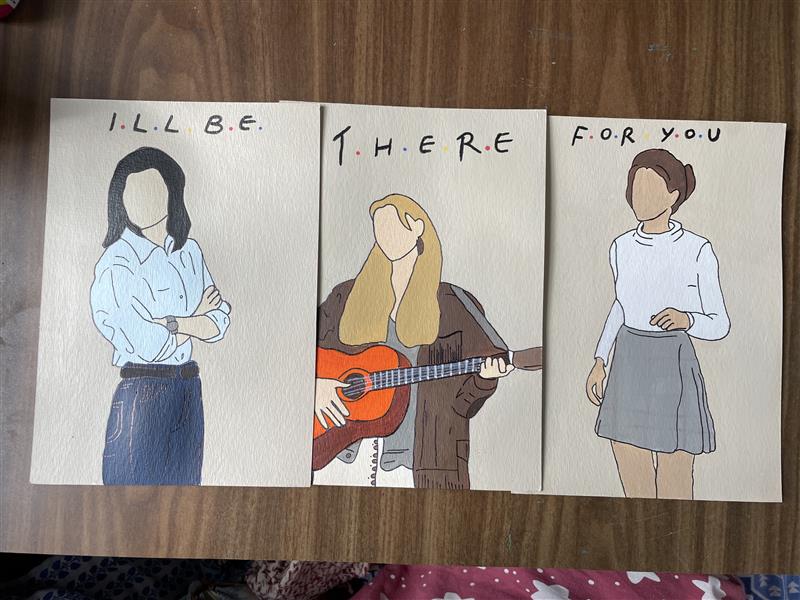 I.L.L B.E.
T.H.E.R.E
F.O.R Y.O.U